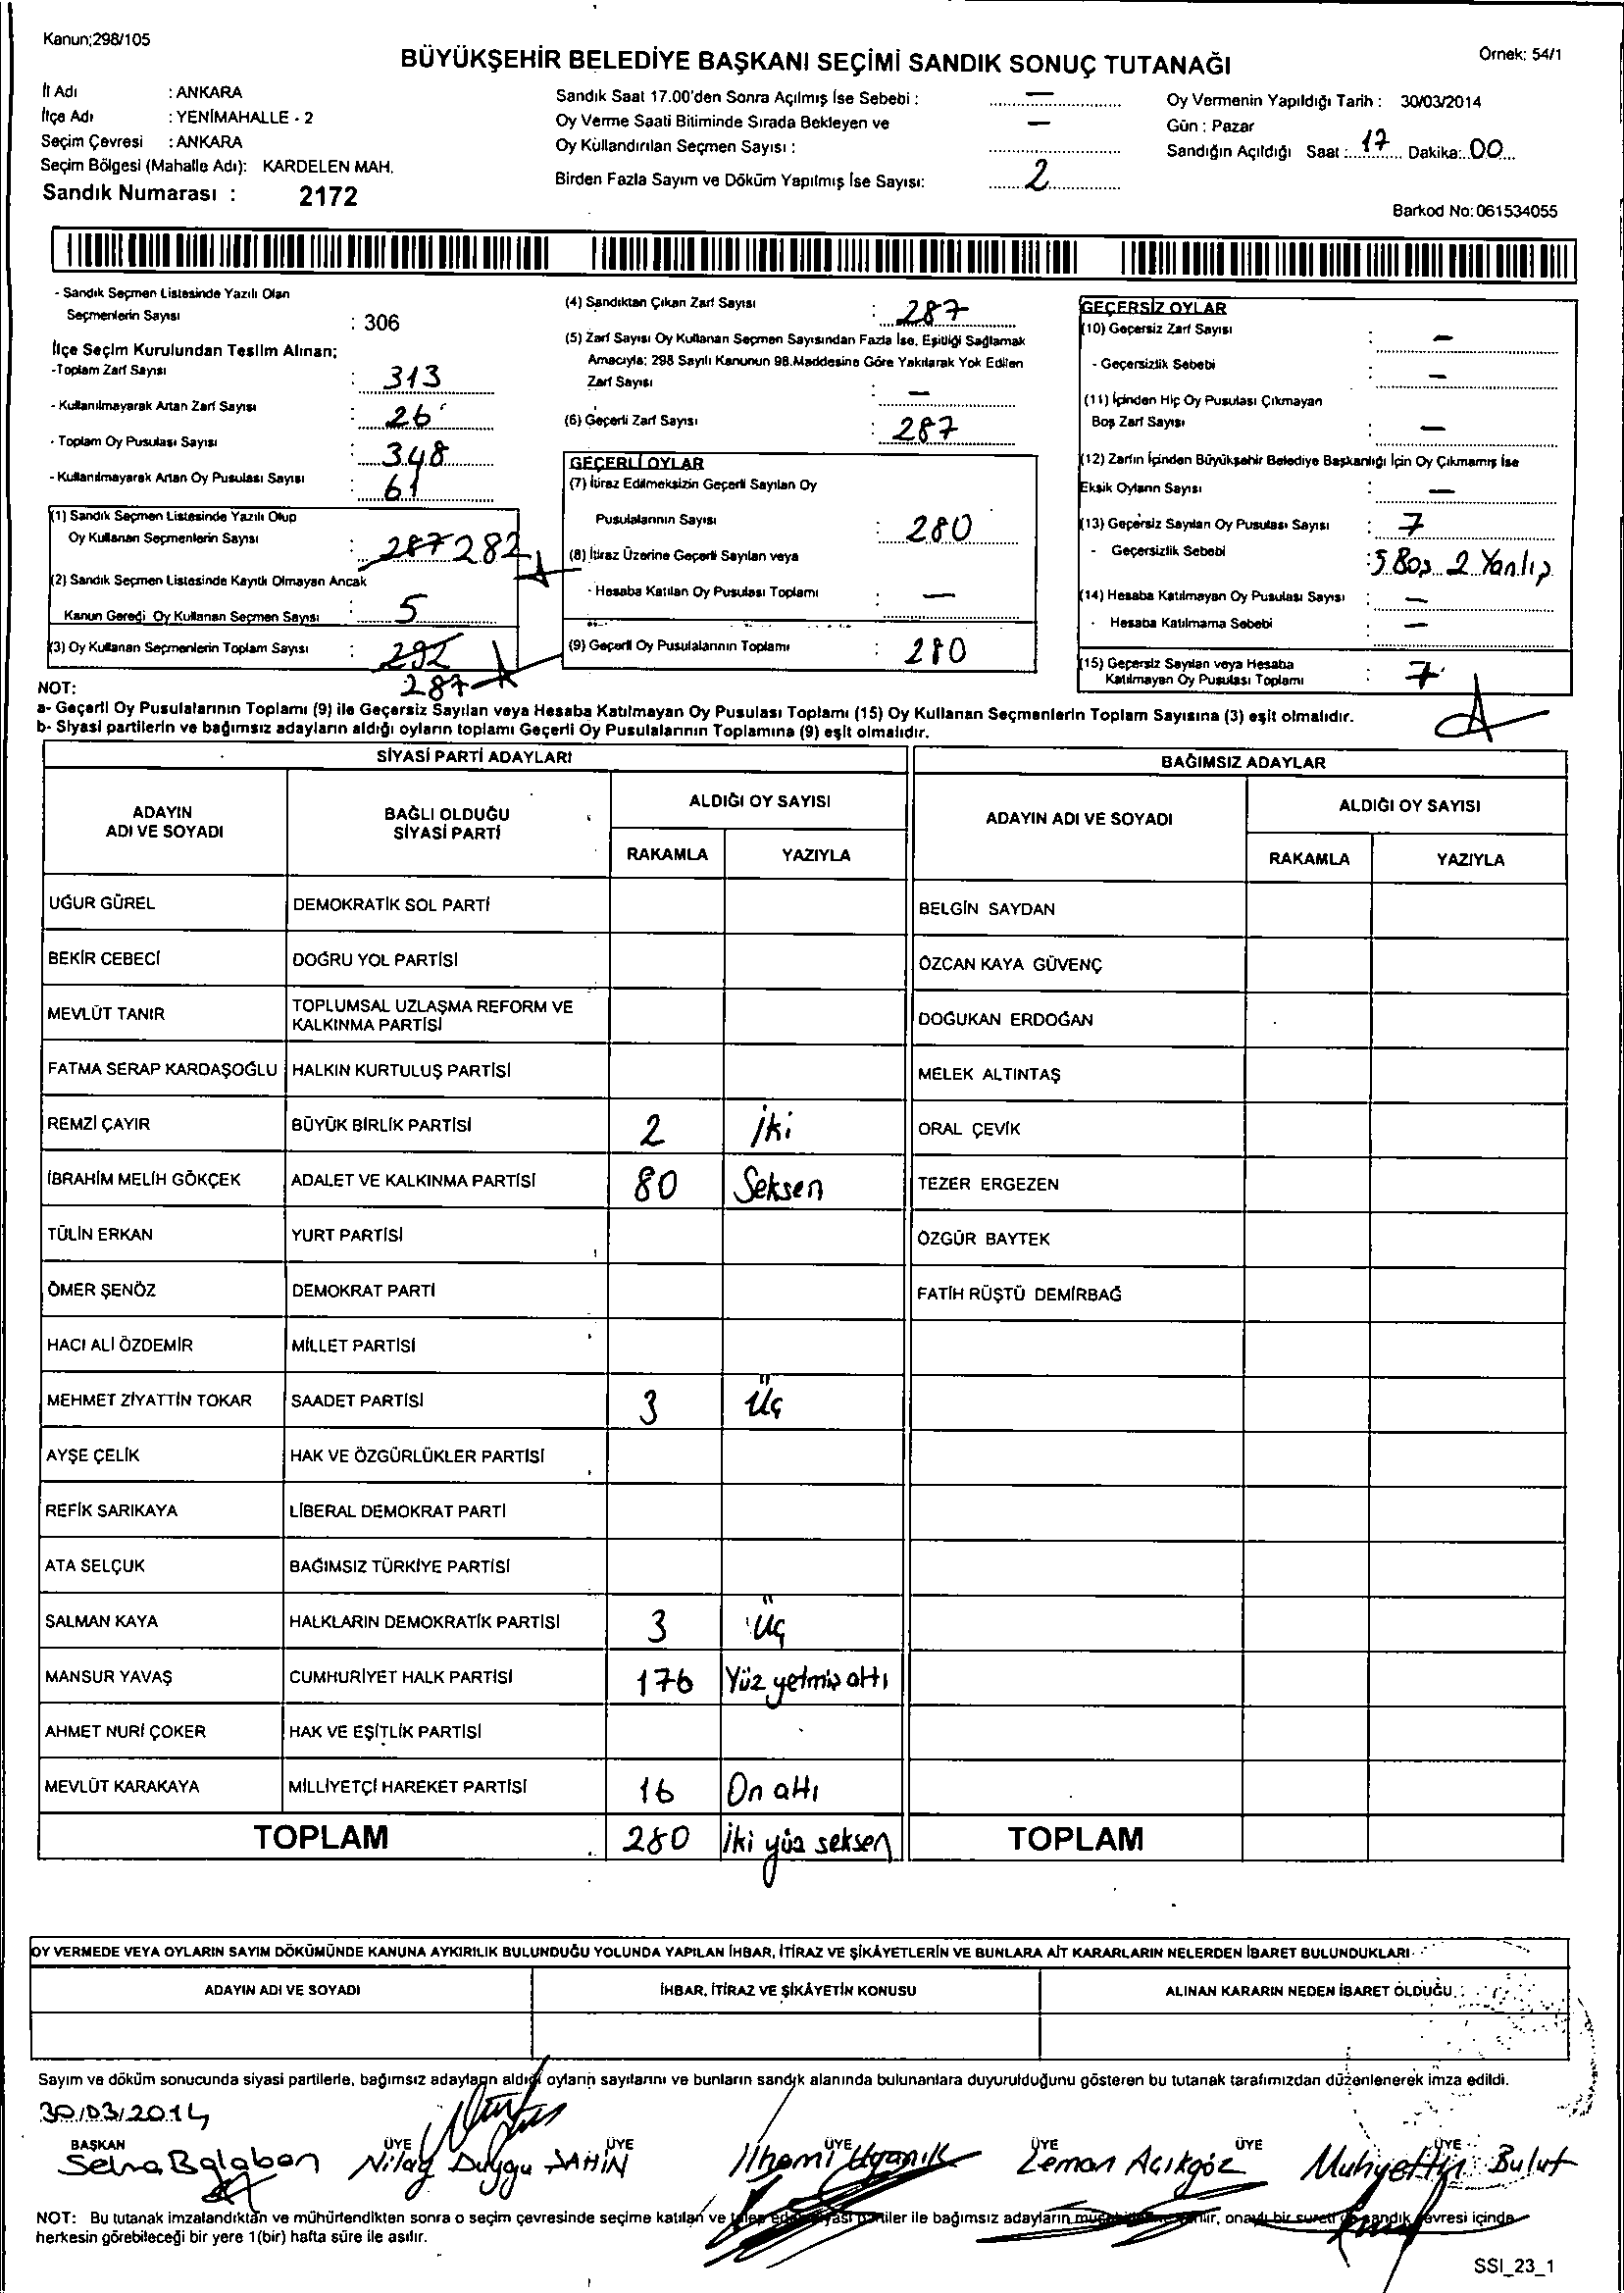 Kanun;298/105
BÜYÜKŞEHİR BELEDİYE BAŞKANI SEÇİMİ SANDIK SONUÇ TUTANAĞI
Örnek: 54/1
İl Adı : ANKARA
İlçe Adı : YENİMAHALLE - 2
Seçim Çevresi : ANKARA
Seçim Bölgesi (Mahalle Adı): KARDELEN MAH.
Sandık Numarası : 2172
Sandık Saat 17.00'den Sonra Açılmış İse Sebebi : —
Oy Verme Saati Bitiminde Sırada Bekleyen ve —
Oy Kullandırılan Seçmen Sayısı :
Birden Fazla Sayım ve Döküm Yapılmış İse Sayısı: 2
Oy Vermenin Yapıldığı Tarih : 30/03/2014
Gün : Pazar
Sandığın Açıldığı Saat : 17 Dakika: 00
Barkod No: 061534055
- Sandık Seçmen Listesinde Yazılı Olan
Seçmenlerin Sayısı : 306
İlçe Seçim Kurulundan Teslim Alınan;
-Toplam Zarf Sayısı : 313
- Kullanılmayarak Artan Zarf Sayısı : 26
- Toplam Oy Pusulası Sayısı : 348
- Kullanılmayarak Artan Oy Pusulası Sayısı : 61
(1) Sandık Seçmen Listesinde Yazılı Olup
Oy Kullanan Seçmenlerin Sayısı : 287 282
(2) Sandık Seçmen Listesinde Kayıtlı Olmayan Ancak
Kanun Gereği Oy Kullanan Seçmen Sayısı : 5
(3) Oy Kullanan Seçmenlerin Toplam Sayısı : 292
287
(4) Sandıktan Çıkan Zarf Sayısı : 287
(5) Zarf Sayısı Oy Kullanan Seçmen Sayısından Fazla İse, Eşitliği Sağlamak
Amacıyla; 298 Sayılı Kanunun 98.Maddesine Göre Yakılarak Yok Edilen
Zarf Sayısı : —
(6) Geçerli Zarf Sayısı : 287
GEÇERLİ OYLAR
(7) İtiraz Edilmeksizin Geçerli Sayılan Oy
Pusulalarının Sayısı : 280
(8) İtiraz Üzerine Geçerli Sayılan veya
- Hesaba Katılan Oy Pusulası Toplamı : —
(9) Geçerli Oy Pusulalarının Toplamı : 280
GEÇERSİZ OYLAR
(10) Geçersiz Zarf Sayısı : —
- Geçersizlik Sebebi : —
(11) İçinden Hiç Oy Pusulası Çıkmayan
Boş Zarf Sayısı : —
(12) Zarfın İçinden Büyükşehir Belediye Başkanlığı İçin Oy Çıkmamış İse
Eksik Oyların Sayısı : —
(13) Geçersiz Sayılan Oy Pusulası Sayısı : 7
- Geçersizlik Sebebi : 5 Boş 2 Yanlış
(14) Hesaba Katılmayan Oy Pusulası Sayısı : —
- Hesaba Katılmama Sebebi : —
(15) Geçersiz Sayılan veya Hesaba
Katılmayan Oy Pusulası Toplamı : 7
NOT:
a- Geçerli Oy Pusulalarının Toplamı (9) ile Geçersiz Sayılan veya Hesaba Katılmayan Oy Pusulası Toplamı (15) Oy Kullanan Seçmenlerin Toplam Sayısına (3) eşit olmalıdır.
b- Siyasi partilerin ve bağımsız adayların aldığı oyların toplamı Geçerli Oy Pusulalarının Toplamına (9) eşit olmalıdır.
SİYASİ PARTİ ADAYLARI
ADAYIN ADI VE SOYADI
BAĞLI OLDUĞU SİYASİ PARTİ
ALDIĞI OY SAYISI
RAKAMLA YAZIYLA
UĞUR GÜREL DEMOKRATİK SOL PARTİ
BEKİR CEBECİ DOĞRU YOL PARTİSİ
MEVLÜT TANIR TOPLUMSAL UZLAŞMA REFORM VE KALKINMA PARTİSİ
FATMA SERAP KARDAŞOĞLU HALKIN KURTULUŞ PARTİSİ
REMZİ ÇAYIR BÜYÜK BİRLİK PARTİSİ 2 İki
İBRAHİM MELİH GÖKÇEK ADALET VE KALKINMA PARTİSİ 80 Seksen
TÜLİN ERKAN YURT PARTİSİ
ÖMER ŞENÖZ DEMOKRAT PARTİ
HACI ALİ ÖZDEMİR MİLLET PARTİSİ
MEHMET ZİYATTİN TOKAR SAADET PARTİSİ 3 Üç
AYŞE ÇELİK HAK VE ÖZGÜRLÜKLER PARTİSİ
REFİK SARIKAYA LİBERAL DEMOKRAT PARTİ
ATA SELÇUK BAĞIMSIZ TÜRKİYE PARTİSİ
SALMAN KAYA HALKLARIN DEMOKRATİK PARTİSİ 3 Üç
MANSUR YAVAŞ CUMHURİYET HALK PARTİSİ 176 Yüz yetmiş altı
AHMET NURİ ÇOKER HAK VE EŞİTLİK PARTİSİ
MEVLÜT KARAKAYA MİLLİYETÇİ HAREKET PARTİSİ 16 On altı
TOPLAM 280 İki yüz seksen
BAĞIMSIZ ADAYLAR
ADAYIN ADI VE SOYADI
ALDIĞI OY SAYISI
RAKAMLA YAZIYLA
BELGİN SAYDAN
ÖZCAN KAYA GÜVENÇ
DOĞUKAN ERDOĞAN
MELEK ALTINTAŞ
ORAL ÇEVİK
TEZER ERGEZEN
ÖZGÜR BAYTEK
FATİH RÜŞTÜ DEMİRBAĞ
TOPLAM
OY VERMEDE VEYA OYLARIN SAYIM DÖKÜMÜNDE KANUNA AYKIRILIK BULUNDUĞU YOLUNDA YAPILAN İHBAR, İTİRAZ VE ŞİKÂYETLERİN VE BUNLARA AİT KARARLARIN NELERDEN İBARET BULUNDUKLARI
ADAYIN ADI VE SOYADI
İHBAR, İTİRAZ VE ŞİKÂYETİN KONUSU
ALINAN KARARIN NEDEN İBARET OLDUĞU
Sayım ve döküm sonucunda siyasi partilerle, bağımsız adayların aldığı oyların sayılarını ve bunların sandık alanında bulunanlara duyurulduğunu gösteren bu tutanak tarafımızdan düzenlenerek imza edildi.
30/03/2014
BAŞKAN ÜYE ÜYE ÜYE ÜYE ÜYE ÜYE
Selva Balaban Nilay Duygu ŞAHİN İlhami Uyanık Leman Açıkgöz Muhyettin Bulut
NOT: Bu tutanak imzalandıktan ve mühürlendikten sonra o seçim çevresinde seçime katılan ve talep eden siyasi partiler ile bağımsız adayların verilir, onaylı bir sureti de sandık çevresi içinde
herkesin görebileceği bir yere 1(bir) hafta süre ile asılır.
SSI_23_1